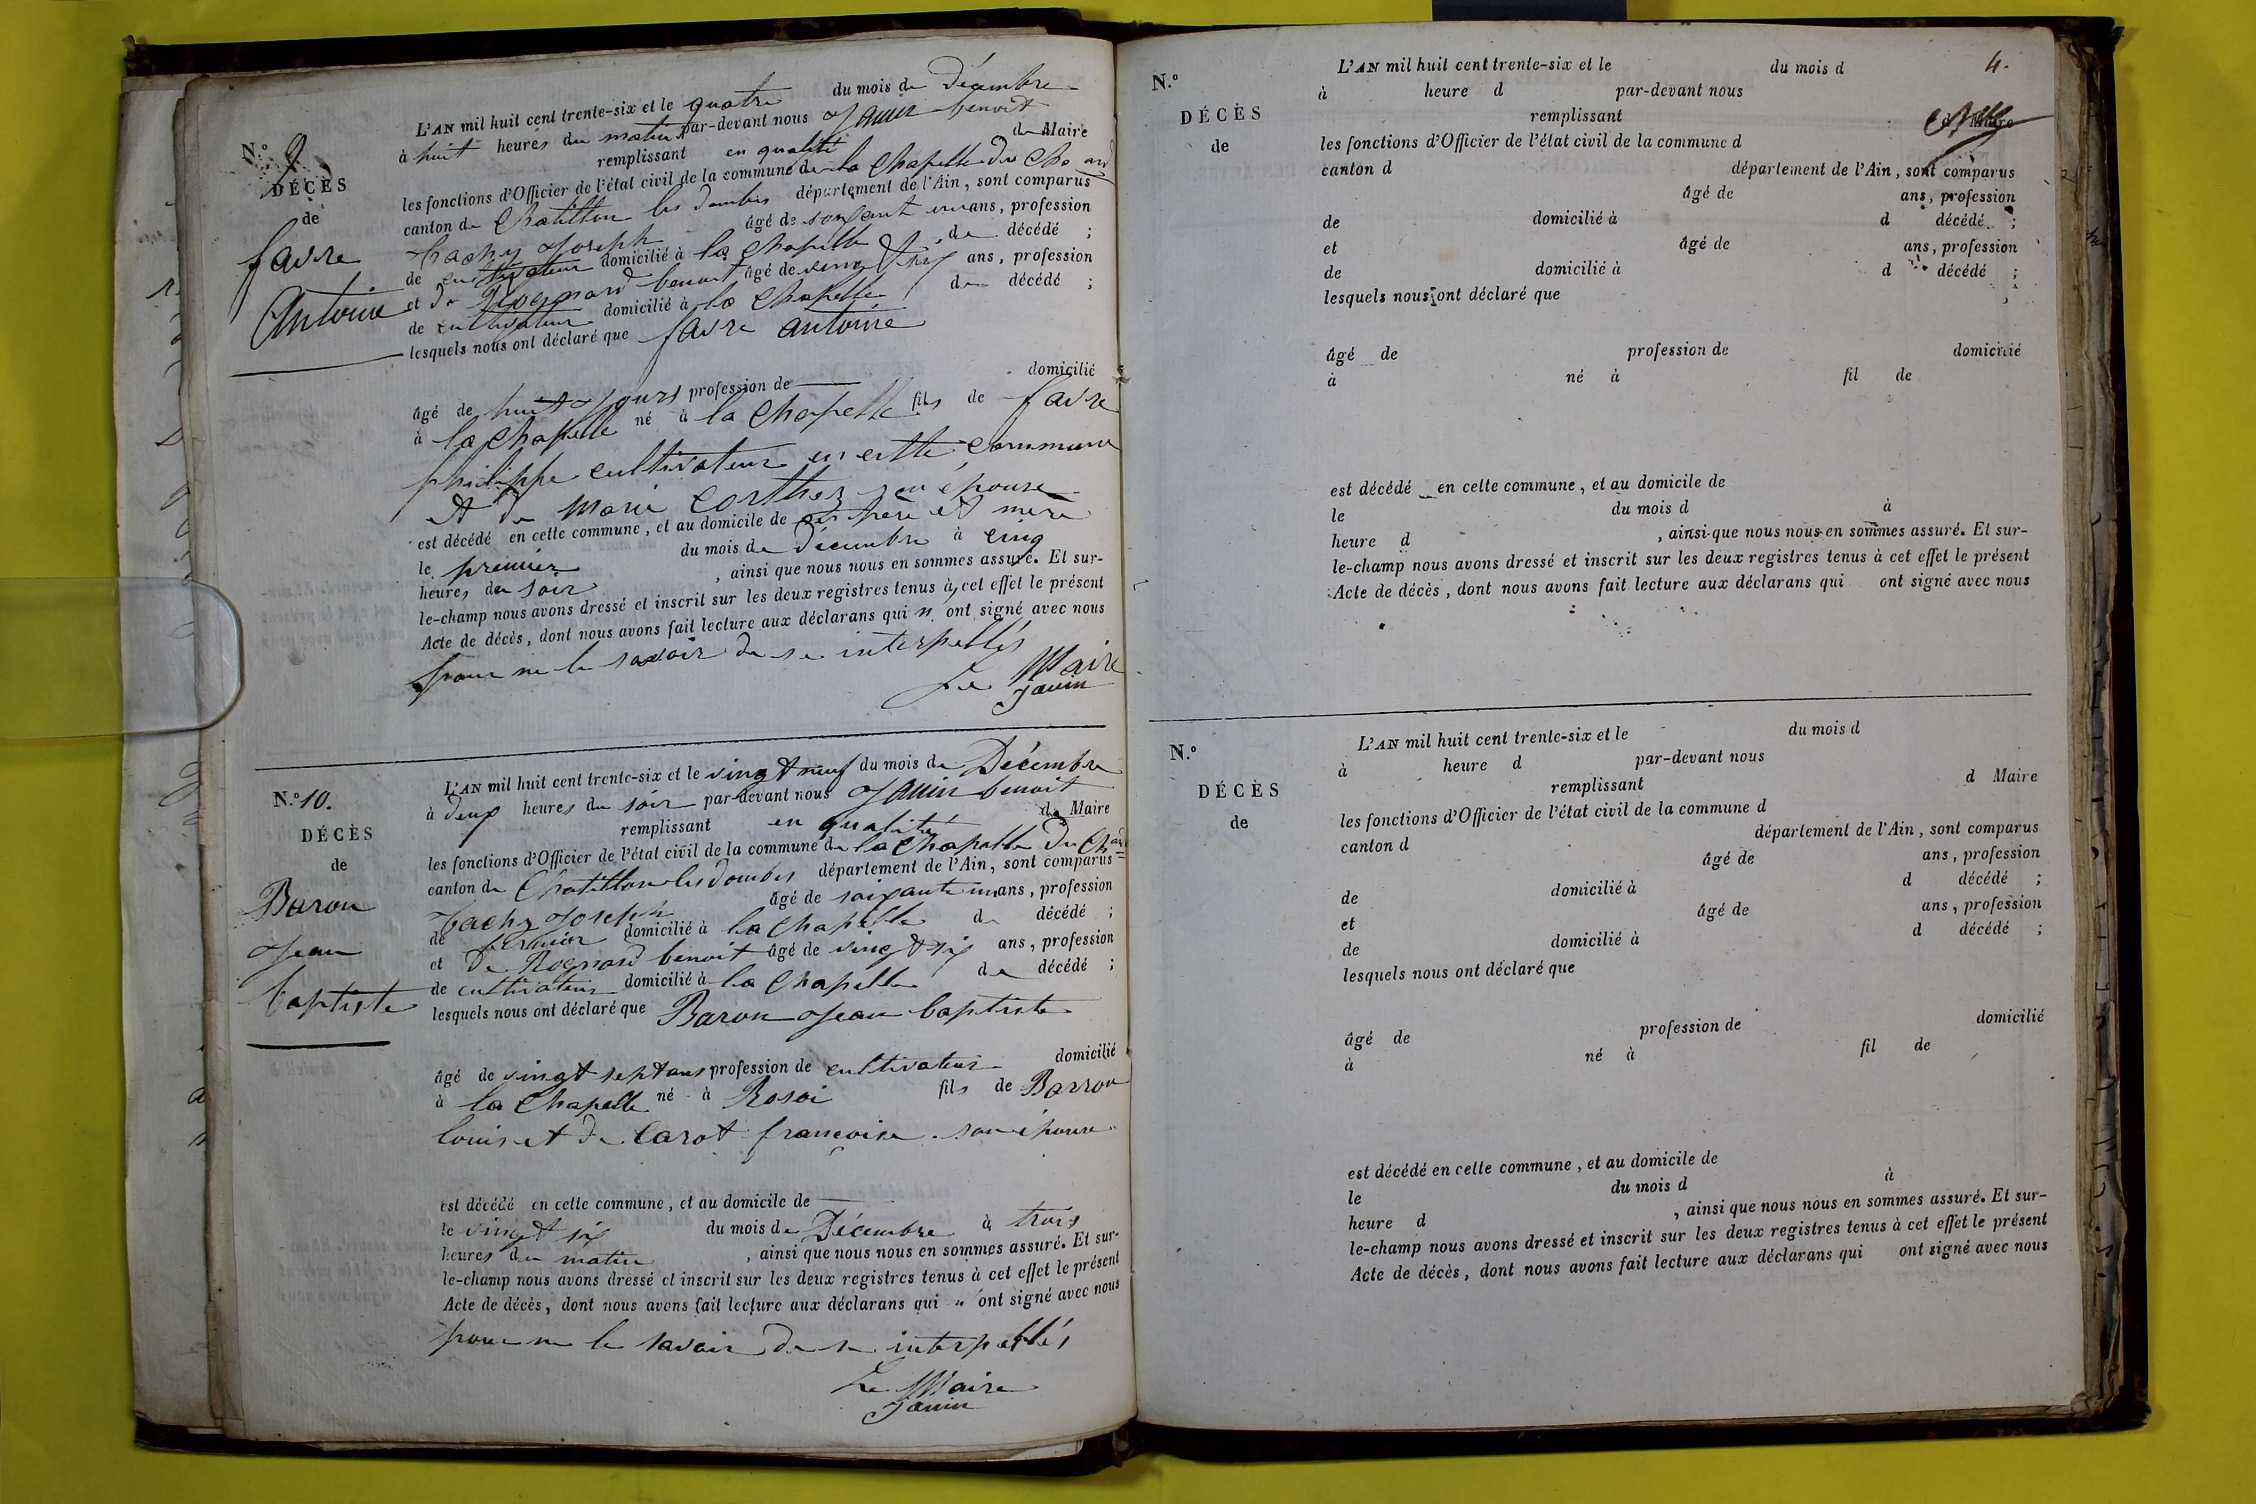 N.º 9
DÉCÈS
de
favre
Antoine
L'AN mil huit cent trente-six et le quatre du mois de Décembre
à huit heures du matin par-devant nous Janin benoit
remplissant en qualité de Maire
les fonctions d'Officier de l'état civil de la commune de la Chapelle du Chard
canton de Chatillon les dombes département de l'Ain, sont comparus
Joseph âgé de soixante un ans, profession
de cultivateur domicilié à la Chapelle de décédé ;
et de benoit âgé de vingt six ans, profession
de cultivateur domicilié à la Chapelle de décédé ;
lesquels nous ont déclaré que favre antoine
âgé de huit jours profession de domicilié
à la Chapelle né à la Chapelle fils de favre
philippe cultivateur en cette commune
et de marie son épouse
est décédé en cette commune, et au domicile de ses père et mère
le premier du mois de Décembre à cinq
heures du soir, ainsi que nous nous en sommes assuré. Et sur-
le-champ nous avons dressé et inscrit sur les deux registres tenus à cet effet le présent
Acte de décès, dont nous avons fait lecture aux déclarans qui n' ont signé avec nous
pour ne le savoir de se interpellés
Le Maire
Janin
N.º 10.
DÉCÈS
de
Baron
Jean
baptiste
L'AN mil huit cent trente-six et le vingt neuf du mois de Décembre
à deux heures du soir par-devant nous Janin benoit
remplissant en qualité de Maire
les fonctions d'Officier de l'état civil de la commune de la Chapelle Du Chard
canton de Chatillon les dombes département de l'Ain, sont comparus
Joseph âgé de soixante un ans, profession
de fermier domicilié à la Chapelle de décédé ;
et De benoit âgé de vingt six ans, profession
de cultivateur domicilié à la Chapelle de décédé ;
lesquels nous ont déclaré que Baron Jean baptiste
âgé de vingt sept ans profession de cultivateur domicilié
à la Chapelle né à Rosoi fils de Barron
louis et de Carot francoise son épouse
est décédé en cette commune, et au domicile de
le vingt six du mois de Décembre à trois
heures du matin, ainsi que nous nous en sommes assuré. Et sur-
le-champ nous avons dressé et inscrit sur les deux registres tenus à cet effet le présent
Acte de décès, dont nous avons fait lecture aux déclarans qui n' ont signé avec nous
pour ne le savoir de se interpellés
Le Maire
Janin
4.
N.º
DÉCÈS
de
L'AN mil huit cent trente-six et le du mois d
à heure d par-devant nous
remplissant d Maire
les fonctions d'Officier de l'état civil de la commune d
canton d département de l'Ain, sont comparus
âgé de ans, profession
de domicilié à d décédé ;
et âgé de ans, profession
de domicilié à d décédé ;
lesquels nous ont déclaré que
âgé de profession de domicilié
à né à fil de
est décédé en cette commune, et au domicile de
le du mois d à
heure d , ainsi que nous nous en sommes assuré. Et sur-
le-champ nous avons dressé et inscrit sur les deux registres tenus à cet effet le présent
Acte de décès, dont nous avons fait lecture aux déclarans qui ont signé avec nous
N.º
DÉCÈS
de
L'AN mil huit cent trente-six et le du mois d
à heure d par-devant nous
remplissant d Maire
les fonctions d'Officier de l'état civil de la commune d
canton d département de l'Ain, sont comparus
âgé de ans, profession
de domicilié à d décédé ;
et âgé de ans, profession
de domicilié à d décédé ;
lesquels nous ont déclaré que
âgé de profession de domicilié
à né à fil de
est décédé en cette commune, et au domicile de
le du mois d à
heure d , ainsi que nous nous en sommes assuré. Et sur-
le-champ nous avons dressé et inscrit sur les deux registres tenus à cet effet le présent
Acte de décès, dont nous avons fait lecture aux déclarans qui ont signé avec nous